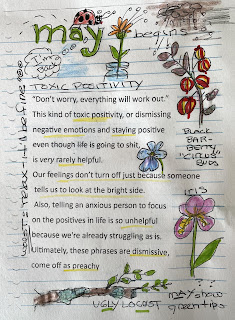 may begins
I'm Back
TOXIC POSITIVITY
"Don't worry, everything will work out."
This kind of toxic positivity, or dismissing
negative emotions and staying positive
even though life is going to shit,
is very rarely helpful.
Our feelings don't turn off just because someone
tells us to look at the bright side.
Also, telling an anxious person to focus
on the positives in life is so unhelpful
because we're already struggling as is.
Ultimately, these phrases are dismissive,
come off as preachy
BLACK
BAR-
BERRY
BUDS
IRIS
MAY show
green tips
UGLY LOCUST